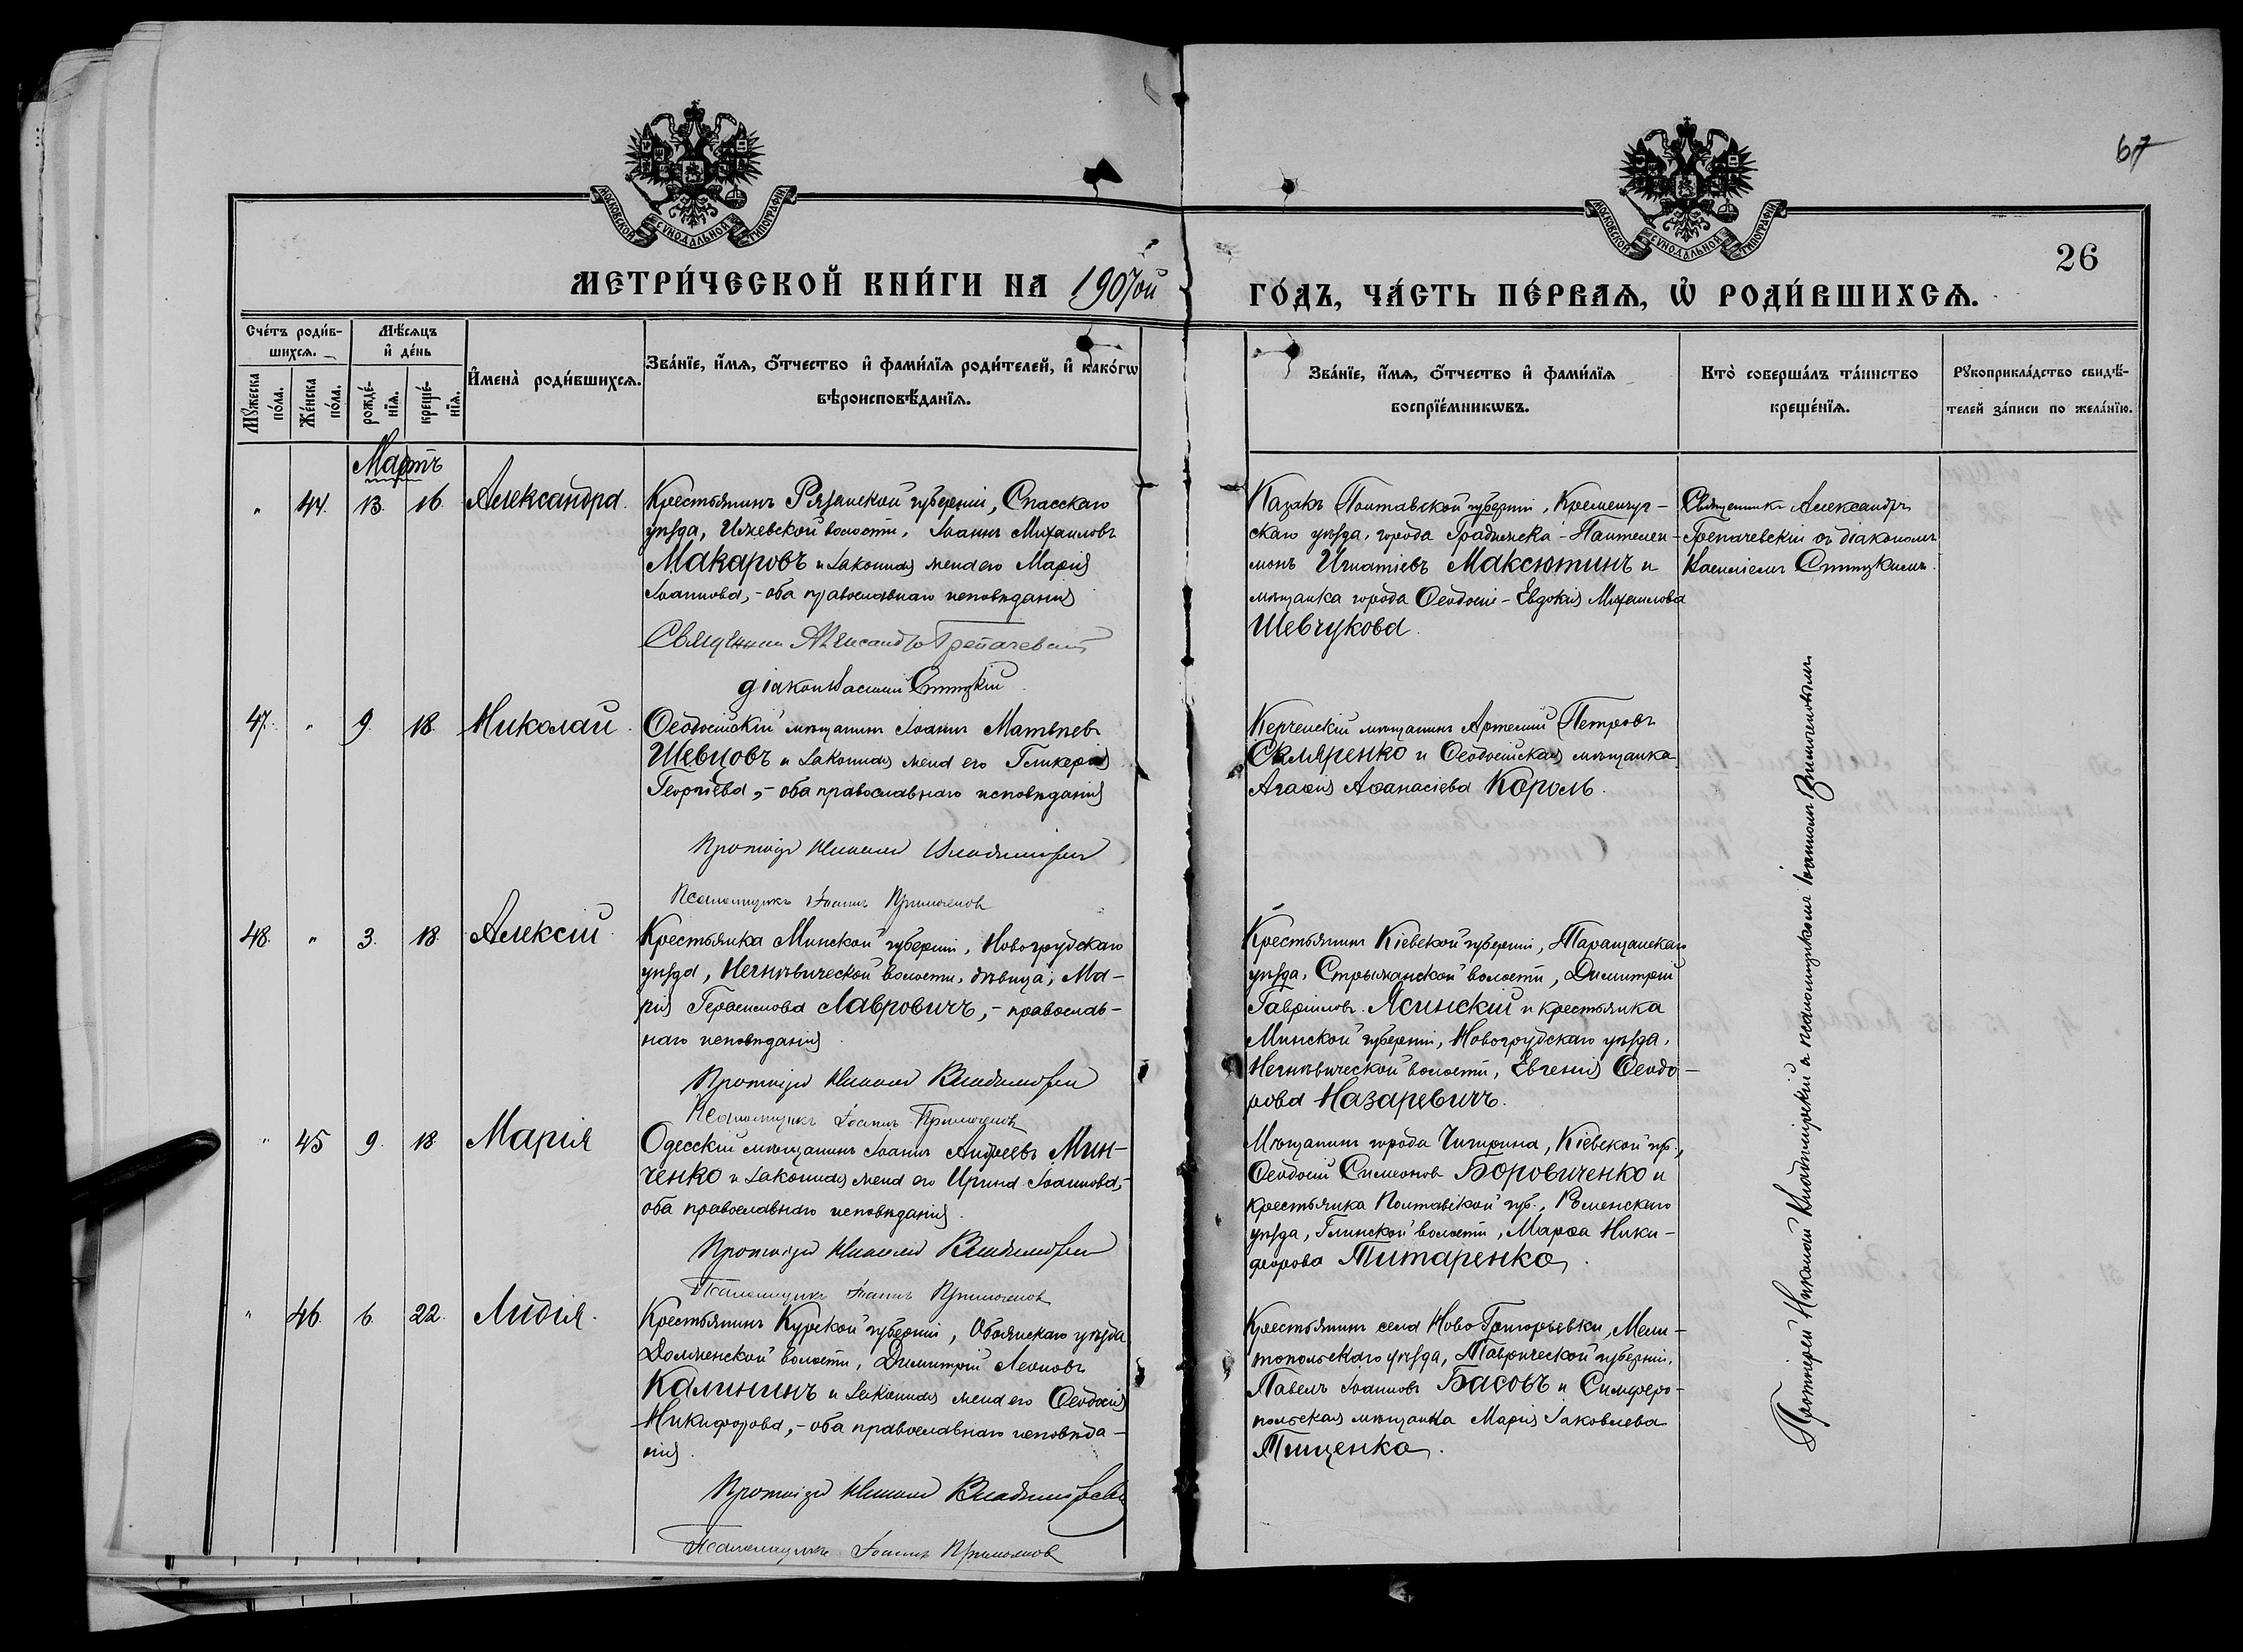 67
МОСКОВСКОЙ СѴНОДАЛЬНОЙ ТИПОГРАФІИ
МОСКОВСКОЙ СѴНОДАЛЬНОЙ ТИПОГРАФІИ
26
МЕТРИ́ЧЕСКОЙ КНИ́ГИ НА 1907ой
ГО́ДЪ, ЧА́СТЬ ПЕ́РВАѦ, Ѡ҆ РОДИ́ВШИХСѦ.
Сче́тъ роди́в-
шихсѧ.
Мѣ́сѧцъ
и҆ де́нь
Мꙋ́жеска по́ла.
Же́нска по́ла.
рожде́-
нїѧ.
креще́-
нїѧ.
И҆мена̀ роди́вшихсѧ.
Зва́нїе, и҆́мѧ, ѻ҆́тчество и҆ фами́лїѧ роди́телей, и҆ како́гѡ
вѣроисповѣ́данїѧ.
Зва́нїе, и҆́мѧ, ѻ҆́тчество и҆ фами́лїѧ
воспрїе́мникѡвъ.
Кто̀ соверша́лъ та́инство
креще́нїѧ.
Рꙋкоприкла́дство свидѣ́-
телей за́писи по жела́нїю.
Мартъ
" 44. 13. 16. Александра.
Крестьянинъ Рязанской губерніи, Спасскаго
уѣзда, Ижевской волости, Іоаннъ Михаиловъ
Макаровъ и законная жена его Марія
Іоаннова, - оба православнаго исповѣданія
Священник Александръ Трепачевскій
діаконъ Василій
Казакъ Полтавской губерніи, Кременчуг-
скаго уѣзда, города Градижска - Пантелеи-
монъ Игнатіевъ Максютинъ и
мѣщанка города Ѳеодосіи - Евдокія Михаилова
Шевчукова.
Священникъ Александръ
Трепачевскій съ діакономъ
Василіемъ
47. " 9. 18. Николай.
Ѳеодосійскій мѣщанинъ Іоаннъ Матвѣевъ
Шевцовъ и законная жена его Гликерія
Георгіева, - оба православнаго исповѣданія
Протоіер Николай Владимірскій
Псаломщикъ Іоаннъ
Керченскій мѣщанинъ Артемій Петровъ
Скляренко и Ѳеодосійская мѣщанка
Агаѳія Аѳанасіева Король.
48. " 3. 18. Алексій
Крестьянка Минской губерніи, Новогрудскаго
уѣзда, Негнѣвической волости, дѣвица, Ма-
рія Герасимова Лавровичъ, - православ-
наго исповѣданія.
Протоіер Николай Владимірскій
Псаломщикъ Іоаннъ
Крестьянинъ Кіевской губерніи, Таращанскаго
уѣзда, Стрыжавской волости, Димитрій
Гавріиловъ Ясинскій и крестьянка
Минской губерніи, Новогрудскаго уѣзда,
Негнѣвической волости, Евгенія Ѳеодо-
рова Назаревичъ.
" 45 9. 18 Марія
Одесскій мѣщанинъ Іоаннъ Андреевъ Мин-
ченко и законная жена его Ирина Іоаннова, -
оба православнаго исповѣданія.
Протоіер Николай Владимірскій
Псаломщикъ Іоаннъ
Мѣщанинъ города Чигирина, Кіевской губ.,
Ѳеодосій Симеонов Боровиченко и
крестьянка Полтавской губ., Роменскаго
уѣзда, Глинской волости, Марѳа Ники-
форова Титаренко.
" 46. 6. 22. Лидія.
Крестьянинъ Курской губерніи, Обоянскаго уѣзда
Долженской волости, Димитрій Леоновъ
Калининъ и законная жена его Ѳеодосія
Никифорова, - оба православнаго исповѣда-
нія.
Протоіер Николай Владимірскій
Псаломщикъ Іоаннъ
Крестьянинъ села Ново Григорьевки, Мели-
топольскаго уѣзда, Таврической губерніи,
Павелъ Іоанновъ Басовъ и Симферо-
польская мѣщанка Марія Іаковлева
Тищенко.
Протоіерей Николай Владимірскій съ псаломщикомъ Іоанномъ